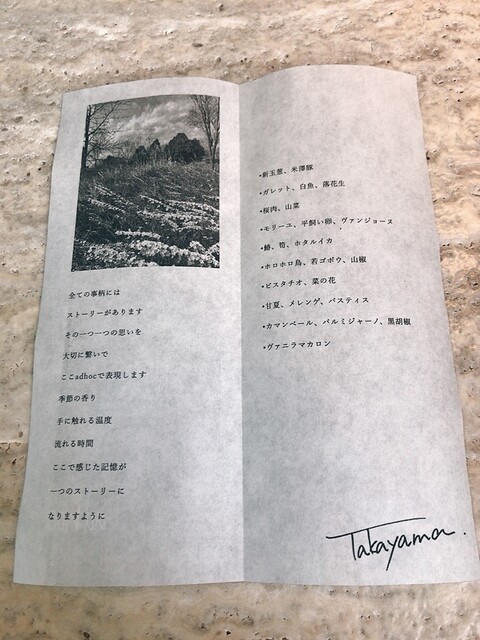 全ての事柄には
ストーリーがあります
その一つ一つの思いを
大切に繋いで
ここadhocで表現します
季節の香り
手に触れる温度
流れる時間
ここで感じた記憶が
一つのストーリーに
なりますように
•新玉葱、米澤豚
•ガレット、白魚、落花生
•桜肉、山菜
•モリーユ、平飼い卵、ヴァンジョーヌ
•鰆、筍、ホタルイカ
•ホロホロ鳥、若ゴボウ、山椒
•ピスタチオ、菜の花
•甘夏、メレンゲ、パスティス
•カマンベール、パルミジャーノ、黒胡椒
•ヴァニラマカロン
Takayama.